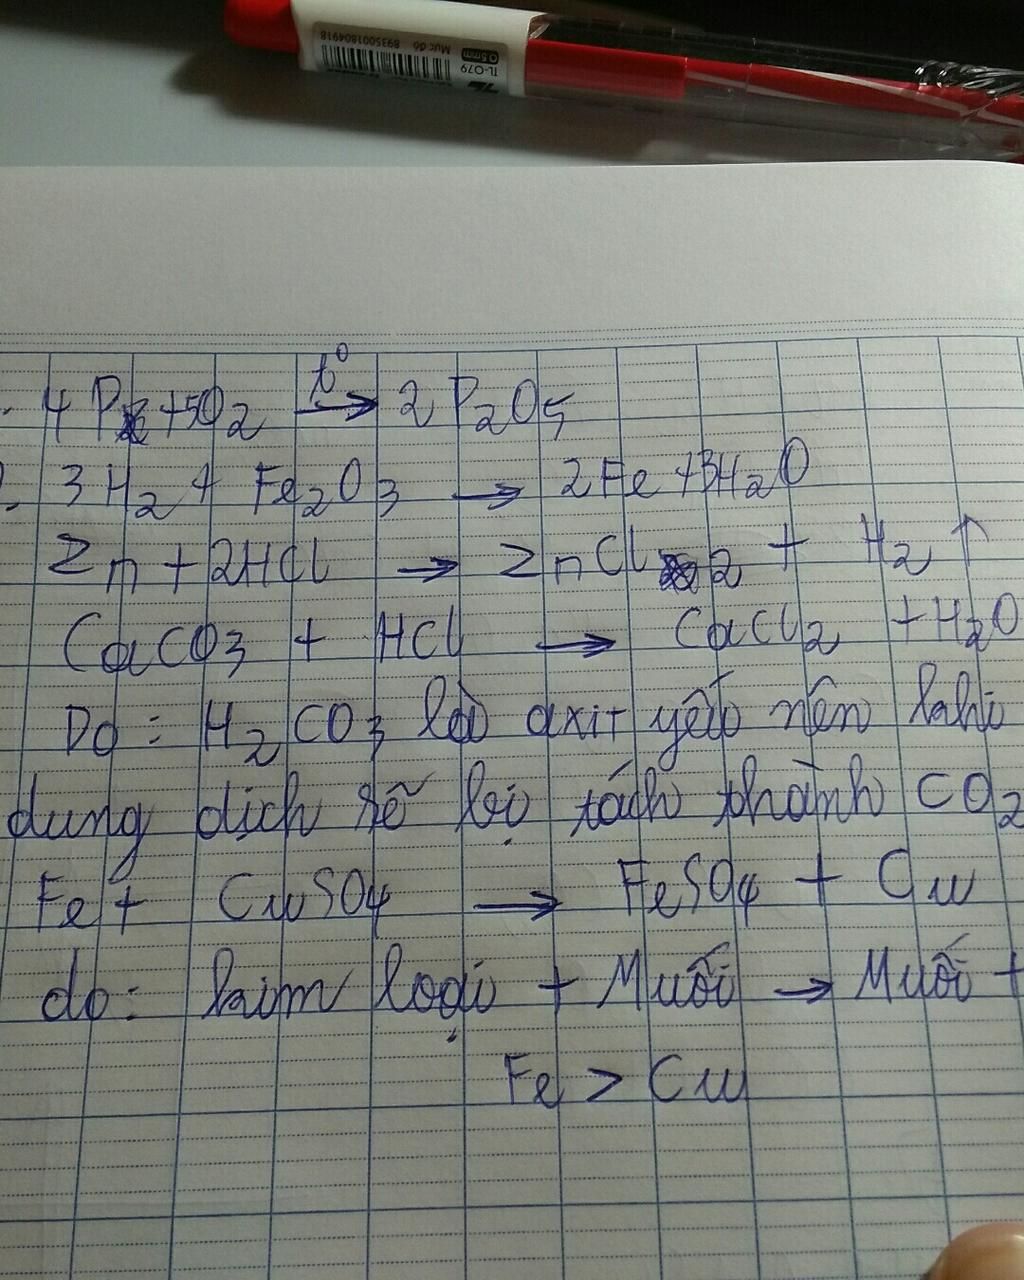 8935001804918 Mực đỏ 0.5mm
TL-079
4P + 5O2 t° → 2P2O5
3H2 + Fe2O3 → 2Fe + 3H2O
Zn + 2HCl → ZnCl2 + H2 ↑
CaCO3 + HCl → CaCl2 + H2O
Do : H2CO3 là axit yếu nên khi
dung dịch sẽ bị tách thành CO2
Fe + CuSO4 → FeSO4 + Cu
do: kim loại + Muối → Muối +
Fe > Cu